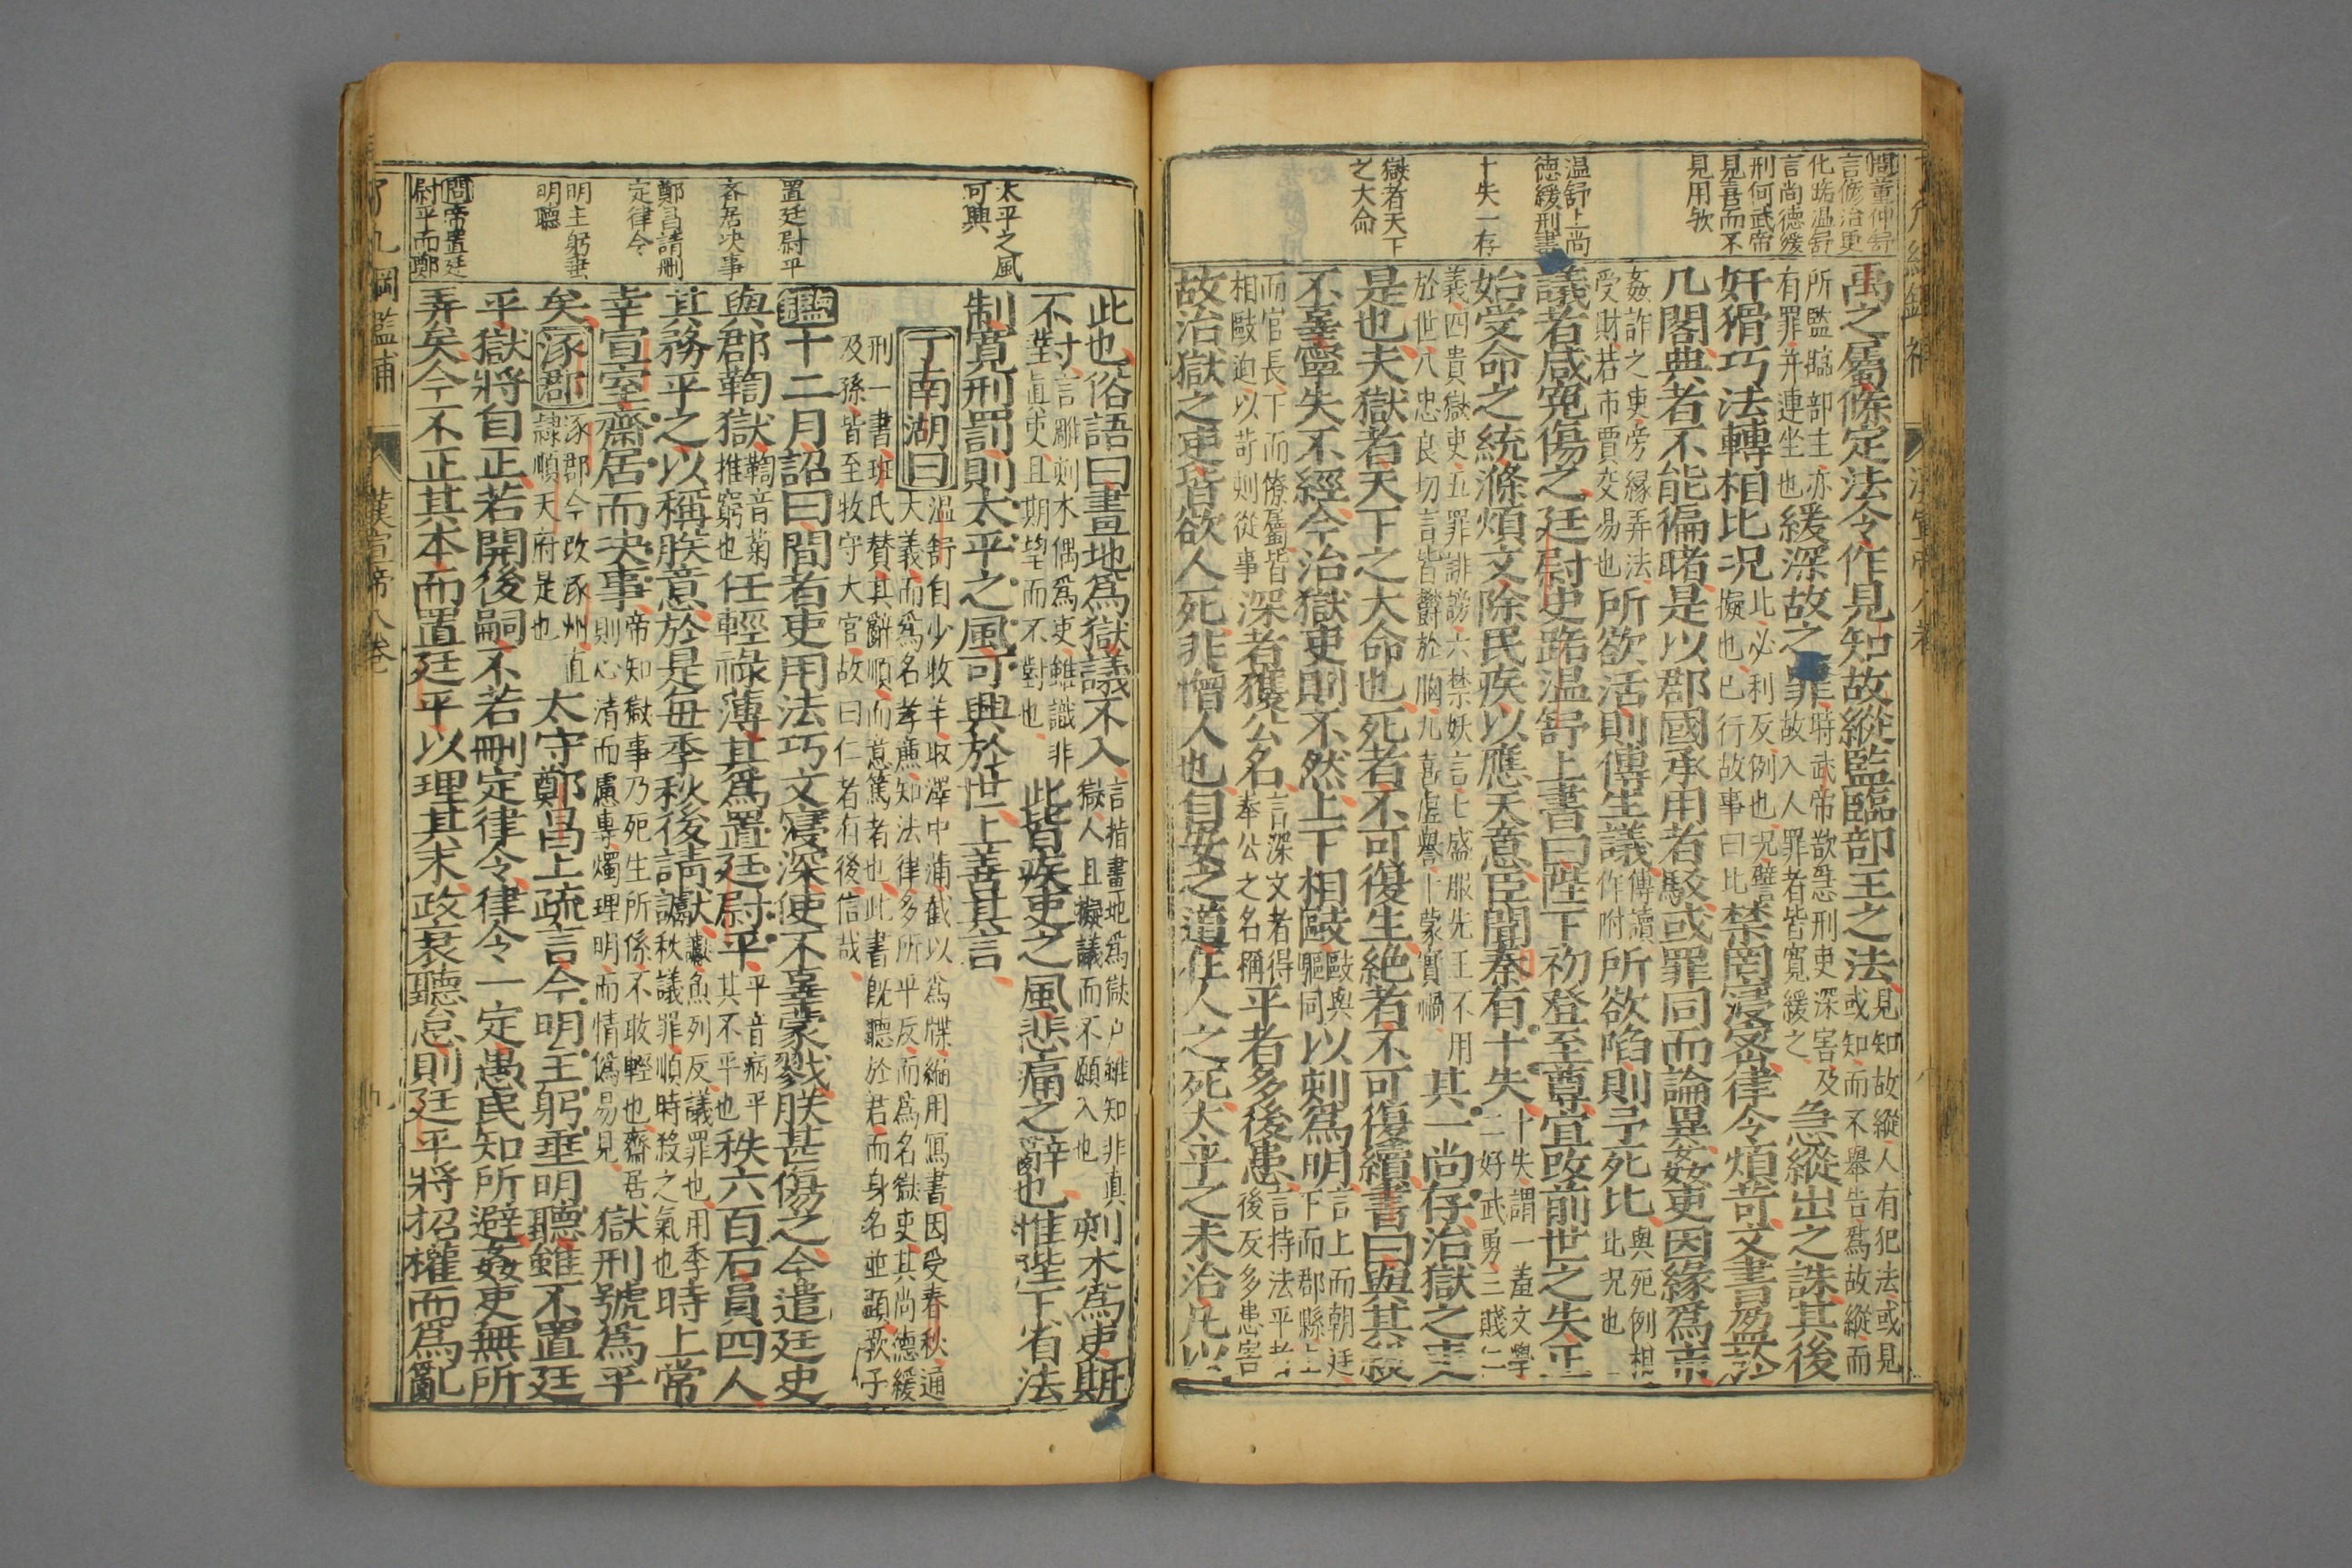 問董仲舒
言修治更
化路温舒
言尚德緩
刑何武帝
見喜而不
見用欤
温舒上尚
德緩刑書
十失一存
獄者天下
之大命
禹之屬條定法令作見知故縱監臨部主之法見知故縱人有犯法或見
或知而不舉告爲故縱而
所監臨部主亦
有罪并連坐也緩深故之罪時武帝欲急刑吏深害及
故入人罪者皆寛緩之急縱出之誅其後
奸猾巧法轉相比况此必利反例也况譬
擬也已行故事曰比禁罔寖密律令煩苛文書盈於
几閣典者不能徧睹是以郡國承用者駁或罪同而論異姦吏因緣爲市
姦詐之吏旁緣弄法
受財若市賈交易也所欲活則傅生議傅讀
作附所欲陷則予死比與死例相
比况也
議者咸寃傷之廷尉史路温舒上書曰陛下初登至尊宜改前世之失正
始受命之統滌煩文除民疾以應天意臣聞秦有十失十失謂一羞文學
二好武勇三賤仁
義四貴獄吏五罪誹謗六禁妖言七盛服先王不用
於世八忠良切言皆鬱於胸九喜虚譽十蒙實禍其一尚存治獄之吏
是也夫獄者天下之大命也死者不可復生絶者不可復續書曰與其殺
不辜寧失不經今治獄吏則不然上下相敺敺與
驅同以刻爲明言上而朝廷
下而郡縣上
而官長下而僚屬皆
相敺迫以苛刻從事深者獲公名言深文者得
奉公之名稱平者多後患言持法平者
後反多患害
故治獄之吏皆欲人死非憎人也自安之道在人之死太平之未治凡以
太平之風
可興
置廷尉平
齊居决事
鄭昌請刪
定律令
明主躬垂
明聽
問帝置廷
尉平而鄭
此也俗語曰畫地爲獄議不入言指畫地爲獄户雖知非真
獄人且擬議而不願入也刻木爲吏期
不對言雕刻木偶爲吏雖識非
真吏且期望而不對也此皆疾吏之風悲痛之辭也惟陛下省法
制寛刑罰則太平之風可興於世上善其言
丁南湖曰温舒自少收羊取澤中蒲截以爲牒編用寫書因受春秋通
大義而爲名孝廉知法律多所平反而爲名獄吏其尚德緩
刑一書班氏賛其辭順而意篤者也此書旣聽於君而身名並顯厥子
及孫皆至牧守大官故曰仁者有後信哉
鑑十二月詔曰間者吏用法巧文寖深使不辜蒙戮朕甚傷之今遣廷史
與郡鞫獄鞫音菊
推窮也任輕祿薄其爲置廷尉平平音病平
其不平也秩六百石員四人
其務平之以稱朕意於是每季秋後請讞讞魚列反議罪也用季
秋議罪順時殺之氣也時上常
幸宣室齋居而决事帝知獄事乃死生所係不敢輕也齋居
則心清而慮專燭理明而情僞易見獄刑號爲平
矣涿郡涿郡今改涿州直
隸順天府是也太守鄭昌上疏言今明主躬垂明聽雖不置廷
平獄將自正若開後嗣不若刪定律令律令一定愚民知所避姦吏無所
弄矣今不正其本而置廷平以理其末政衰聽怠則廷平將招權而爲亂
了凡綱鑑補
漢宣帝八卷
九